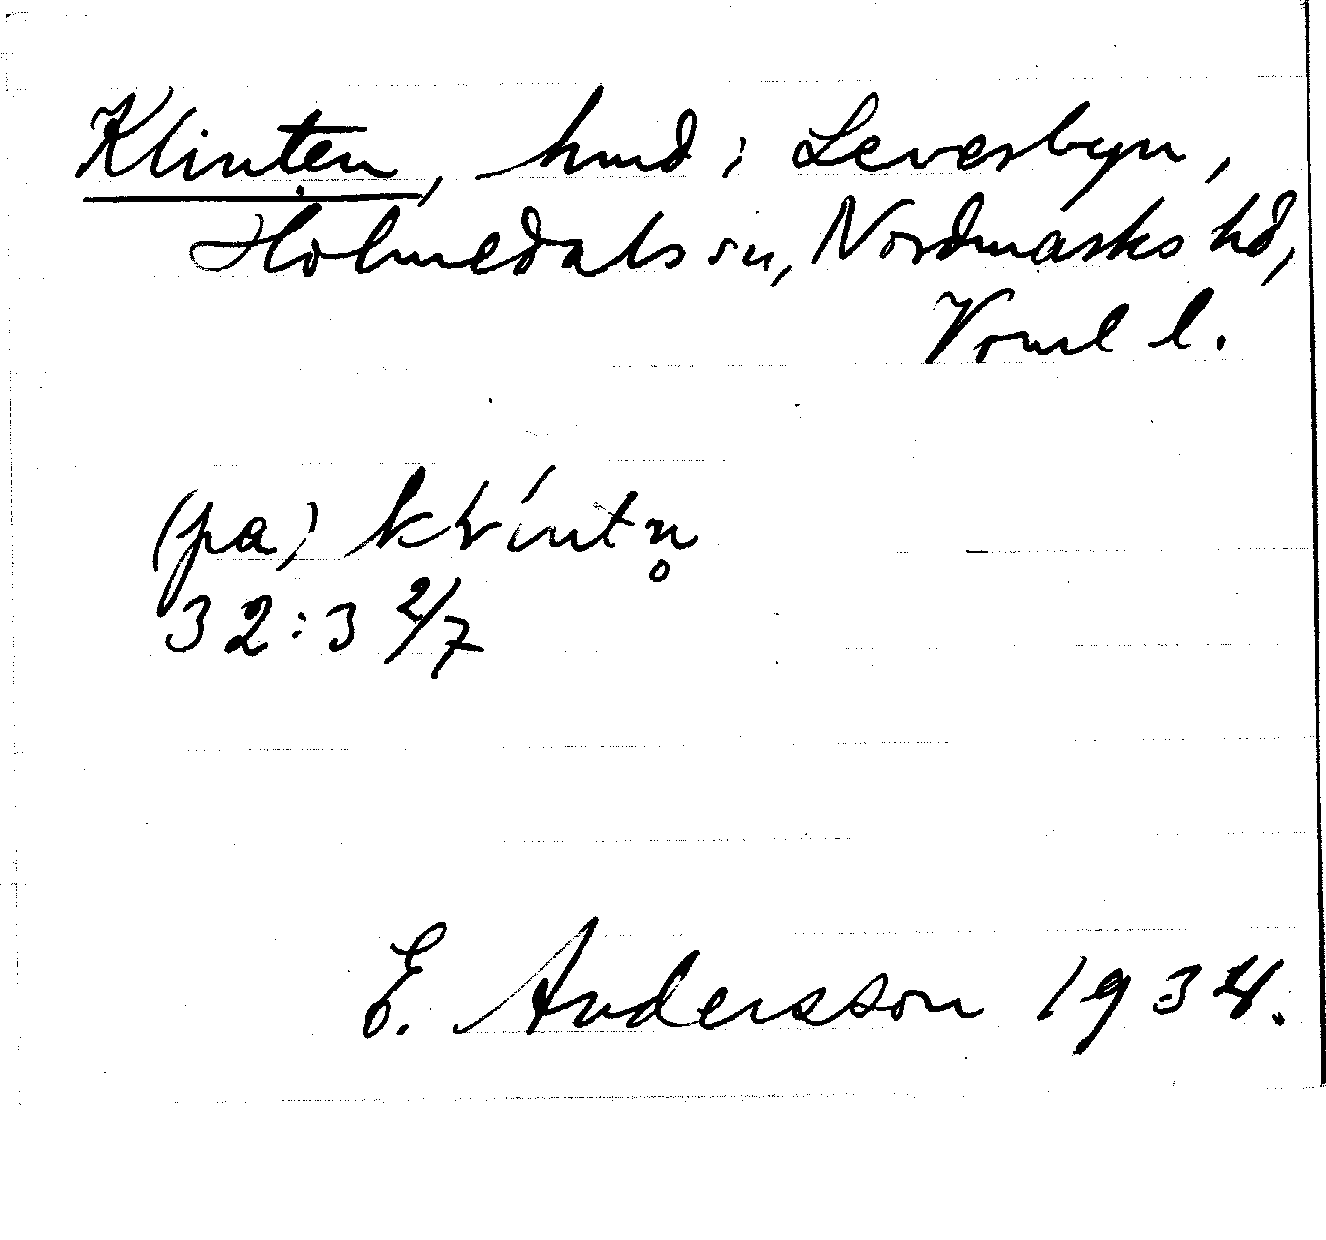 Klinten, hmd i Leverbyn,
Holmedals sn, Nordmarks hd,
Vrml l.
(pa)
32:3 2/7
E. Andersson 1934.